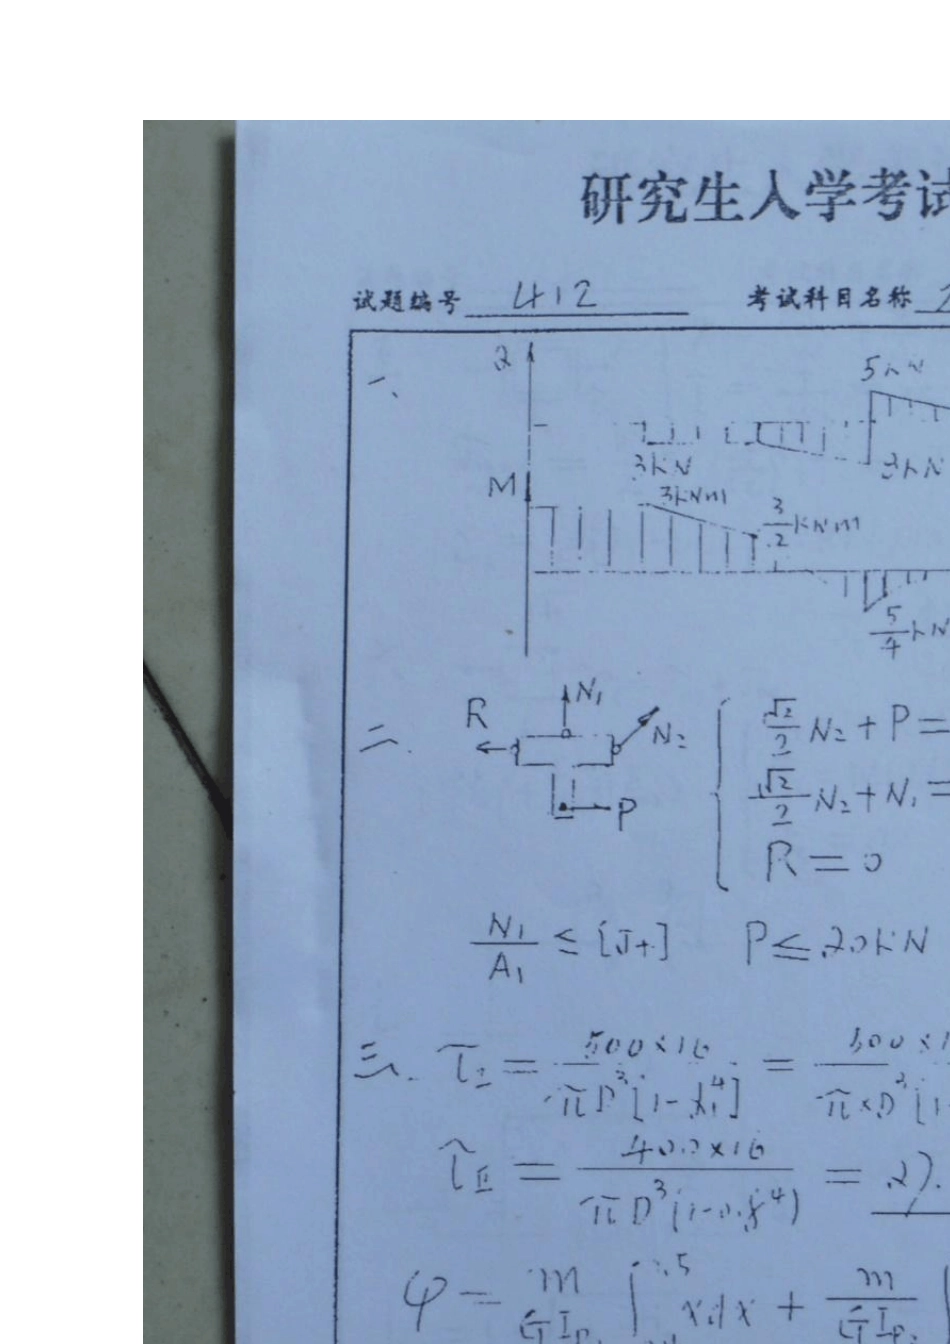 研究生入学考试
试题编号 412 考试科目名称
一、
Q
5kN
3kN
3kN
M
3kNm
3/2 kNm
5/4 kN
二.
R
N₁
N₂
P
√2/2 N₂ + P =
√2/2 N₂ + N₁ =
R = 0
N₁/A₁ ≤ [σ+] P ≤ 20kN
三. τ_I = 500×16 / πD³[1-α₁⁴] =
τ_II = 400×16 / πD³(1-0.8⁴) = 27.
φ = m/GIp ∫ xdx + m/GIp